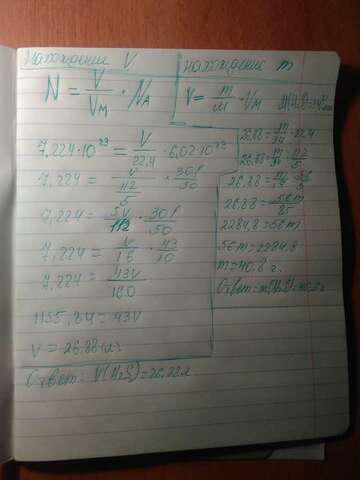 Нахождение V
N = V/Vм · Nа
7,224·10²³ = V/22,4 · 6,02·10²³
7,224 = V/(112/5) · 301/50
7,224 = 5V/112 · 301/50
7,224 = V/16 · 43/10
7,224 = 43V/160
1155,84 = 43V
V = 26,88 л
Ответ: V(H₂S) = 26,88 л
Нахождение m
V = m/M · Vм
26,88 = m/34 · 22,4
26,88 = m/34 · 112/5
26,88 = m/17 · 56/5
26,88 = 56m/85
2284,8 = 56m
56m = 2284,8
m = 40,8 г.
Ответ: m(H₂S) = 40,8 г